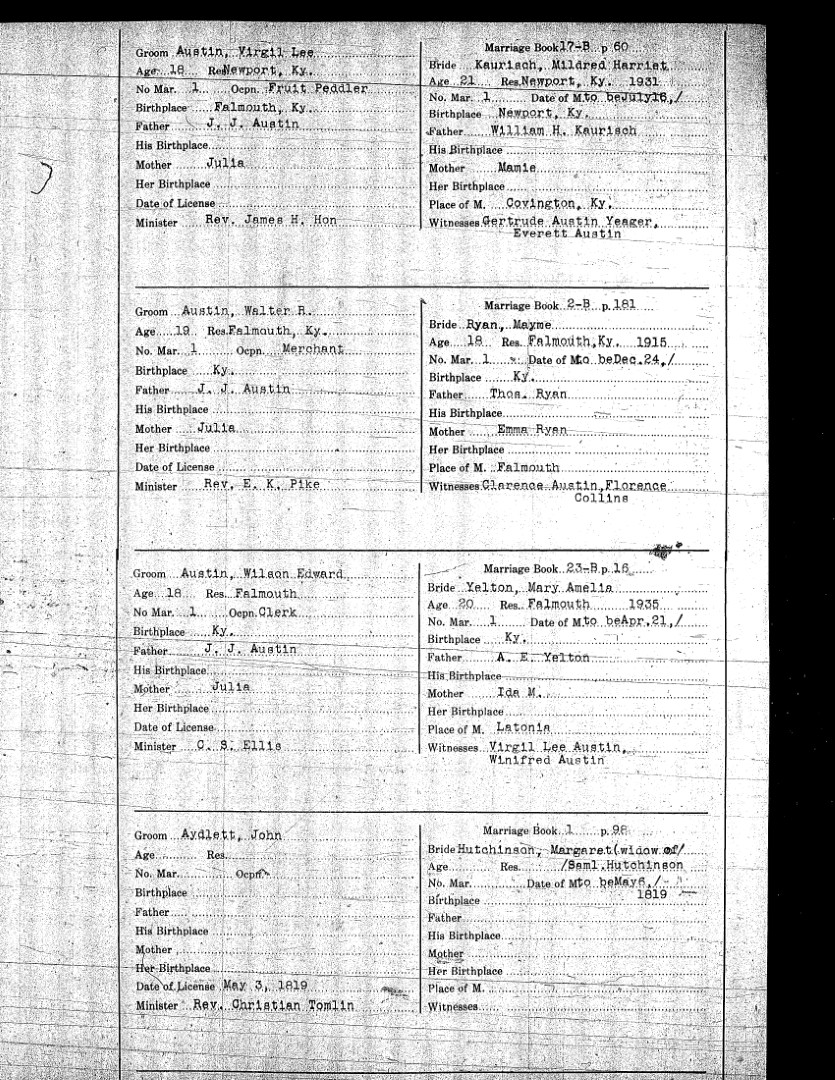 Groom Austin, Virgil Lee
Age 18 Res Newport, Ky.
No Mar. 1 Ocpn. Fruit Peddler
Birthplace Falmouth, Ky.
Father J. J. Austin
His Birthplace
Mother Julia
Her Birthplace
Date of License
Minister Rev. James H. Hon
Marriage Book 17-B p 60
Bride Kaurisch, Mildred Harriet
Age 21 Res. Newport, Ky. 1931
No. Mar. 1 Date of M. to be July 16, /
Birthplace Newport, Ky.
Father William H. Kaurisch
His Birthplace
Mother Mamie
Her Birthplace
Place of M. Covington, Ky.
Witnesses Gertrude Austin Yeager,
Everett Austin
Groom Austin, Walter R.
Age 19 Res. Falmouth, Ky.
No. Mar. 1 Ocpn. Merchant
Birthplace Ky.
Father J. J. Austin
His Birthplace
Mother Julia
Her Birthplace
Date of License
Minister Rev. E. K. Pike
Marriage Book 2-B p. 181
Bride Ryan, Mayme
Age 18 Res. Falmouth, Ky. 1915
No. Mar. 1 Date of M. to be Dec. 24, /
Birthplace Ky.
Father Thos. Ryan
His Birthplace
Mother Emma Ryan
Her Birthplace
Place of M. Falmouth
Witnesses Clarence Austin, Florence
Collins
Groom Austin, Wilson Edward
Age 18 Res. Falmouth
No Mar. 1 Ocpn. Clerk
Birthplace Ky.
Father J. J. Austin
His Birthplace
Mother Julia
Her Birthplace
Date of License
Minister C. S. Ellis
Marriage Book 23-B p. 16
Bride Yelton, Mary Amelia
Age 20 Res. Falmouth 1935
No. Mar. 1 Date of M. to be Apr. 21, /
Birthplace Ky.
Father A. E. Yelton
His Birthplace
Mother Ida M.
Her Birthplace
Place of M. Latonia
Witnesses Virgil Lee Austin,
Winifred Austin
Groom Aydlett, John
Age Res.
No. Mar. Ocpn
Birthplace
Father
His Birthplace
Mother
Her Birthplace
Date of License May 3, 1819
Minister Rev. Christian Tomlin
Marriage Book 1 p. 98
Bride Hutchinson, Margaret (widow of /
Age Res. /Saml. Hutchinson
No. Mar. Date of M. to be May 6, /
Birthplace 1819
Father
His Birthplace
Mother
Her Birthplace
Place of M.
Witnesses